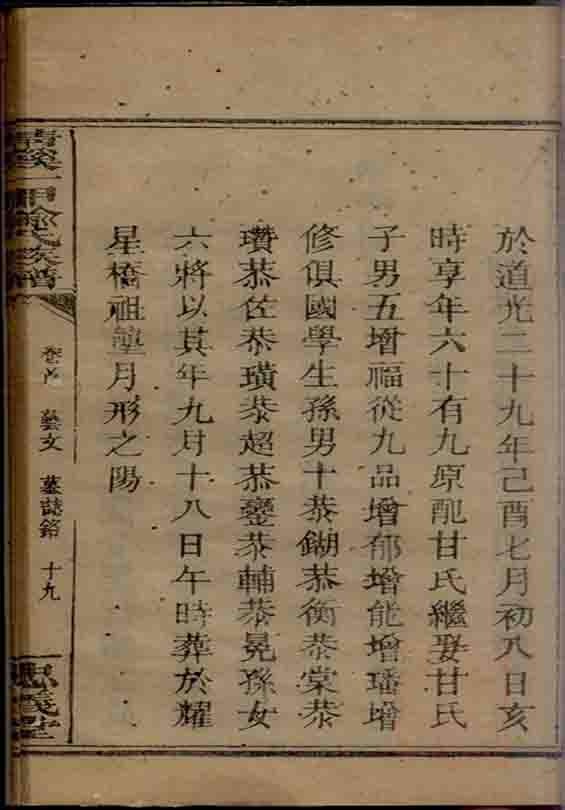 於道光二十九年己酉七月初八日亥
時享年六十有九原配甘氏繼娶甘氏
子男五增福從九品增郁增能增璠增
修俱國學生孫男十恭鍸恭衡恭棠恭
瓚恭佐恭璜恭超恭鑾恭輔恭晃孫女
六將以其年九月十八日午時葬於耀
星橋祖塋月形之陽
清溪一甲徐氏族譜
卷首 藝文 墓誌銘 十九
忠義堂